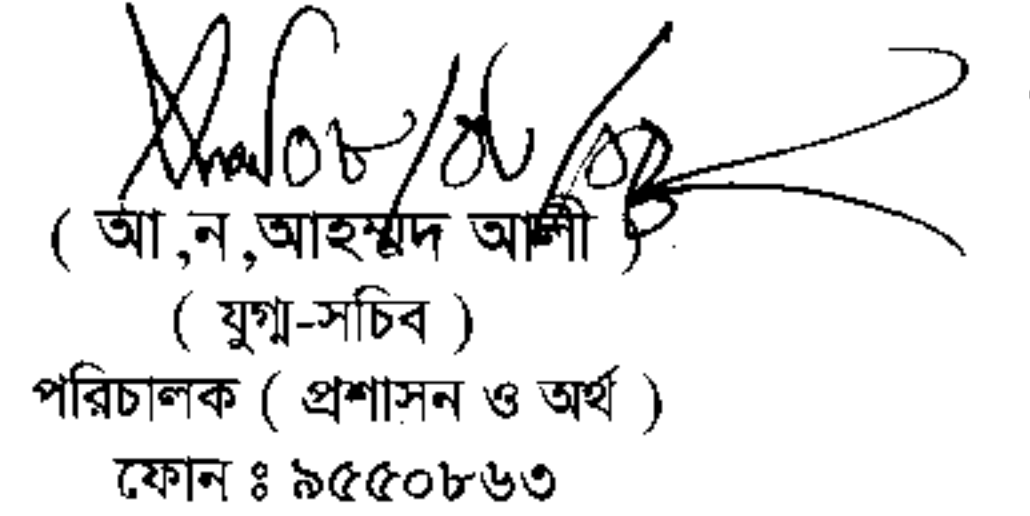 ( আ,ন,আহম্মদ আলী )
( যুগ্ম-সচিব )
পরিচালক ( প্রশাসন ও অর্থ )
ফোন ঃ ৯৫৫০৮৬৩